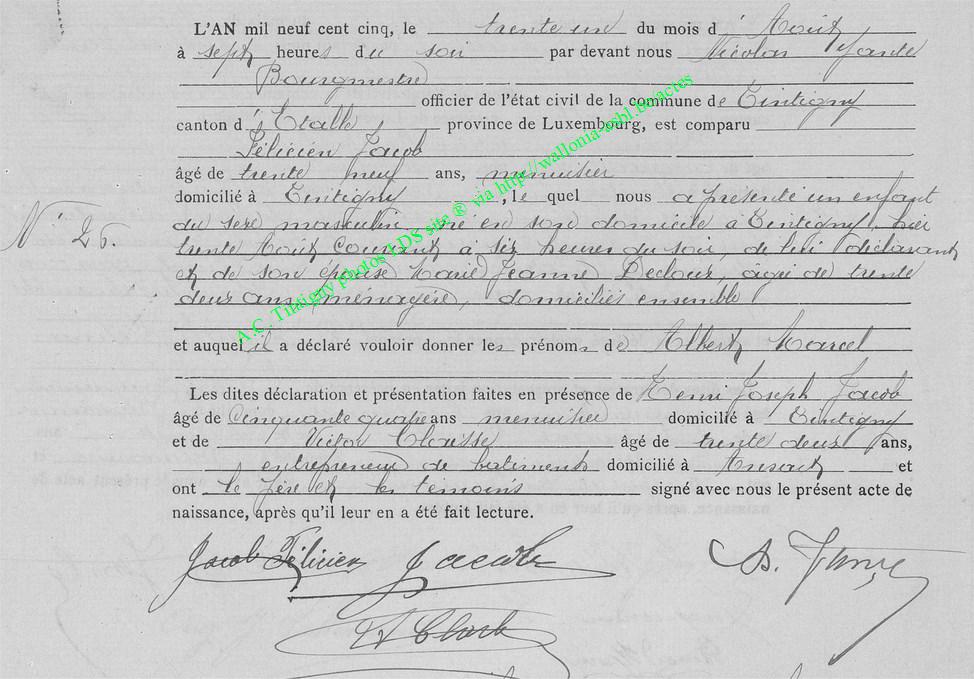 L'AN mil neuf cent cinq, le trente un du mois d'Août
à sept heures du soir par devant nous Nicolas
Bourgmestre
officier de l'état civil de la commune de Tintigny
canton d'Etalle province de Luxembourg, est comparu
Félicien Jacob
âgé de trente neuf ans, menuisier
domicilié à Tintigny, le quel nous a présenté un enfant
N° 26.
du sexe masculin, né en son domicile à Tintigny, hier
trente Août courant à six heures du soir, de lui déclarant
et de son épouse Marie Jeanne, agée de trente
deux ans, ménagère, domiciliés ensemble
A.C. Tintigny photos LDS site ® via http://wallonia-asbl.be/actes
et auquel il a déclaré vouloir donner les prénoms de Albert Marcel
Les dites déclaration et présentation faites en présence de Remi Joseph Jacob
âgé de Cinquante quatre ans menuisier domicilié à Tintigny
et de Victor âgé de trente deux ans,
entrepreneur de batiments domicilié à Ansart et
ont le père et les témoins signé avec nous le présent acte de
naissance, après qu'il leur en a été fait lecture.
Jacob Félicien Jacob